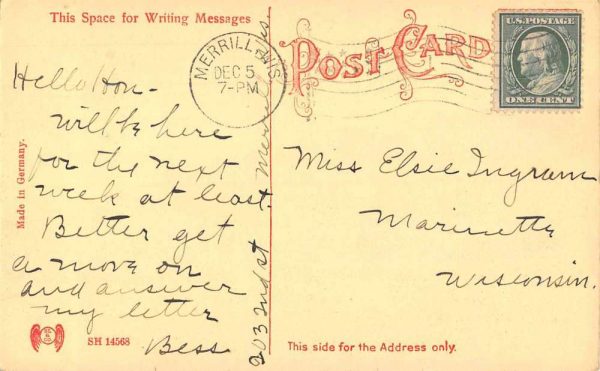 This Space for Writing Messages
POST CARD
U.S. POSTAGE
ONE CENT
MERRILL WIS.
DEC 5
7-PM
Hello Hon-
will be here
for the next
week at least.
Better get
a move on
and answer
my letter
Bess
203 2nd st Merrill Wis.
Miss Elsie Ingram
Marinette
Wisconsin.
Made in Germany.
SH 14568
This side for the Address only.